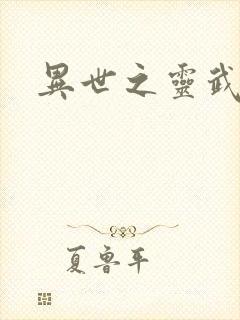 異世之靈武
夏魯平